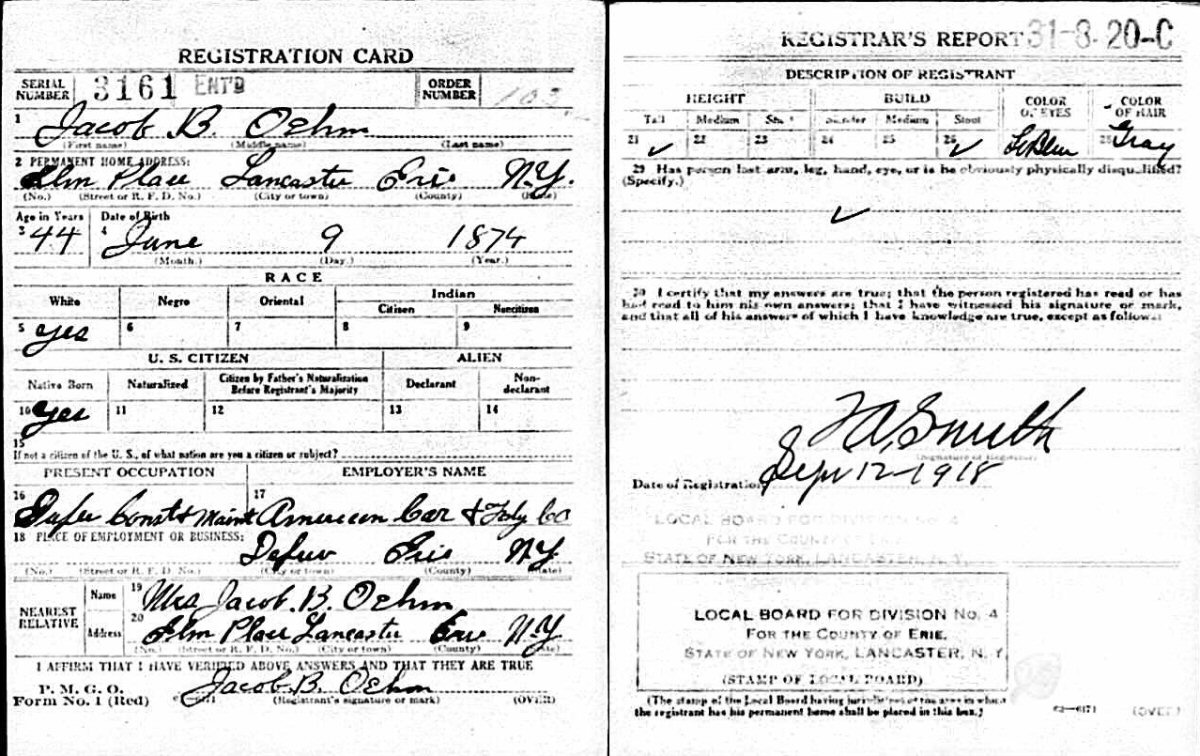 REGISTRATION CARD
SERIAL NUMBER 3161 ENT'D ORDER NUMBER 103
1 Jacob B. Oehm
(First name) (Middle name) (Last name)
2 PERMANENT HOME ADDRESS:
Elm Place Lancaster Erie N.Y.
(No.) (Street or R. F. D. No.) (City or town) (County) (State)
Age in Years Date of Birth
3 44 4 June 9 1874
(Month.) (Day.) (Year.)
RACE
White Negro Oriental Indian
Citizen Noncitizen
5 yes 6 7 8 9
U. S. CITIZEN ALIEN
Native Born Naturalized Citizen by Father's Naturalization Before Registrant's Majority Declarant Non-declarant
10 yes 11 12 13 14
15
If not a citizen of the U. S., of what nation are you a citizen or subject?
PRESENT OCCUPATION EMPLOYER'S NAME
16 Const & Maint 17 American Car & Fdy Co
18 PLACE OF EMPLOYMENT OR BUSINESS:
Depew Erie N.Y.
(No.) (Street or R. F. D. No.) (City or town) (County) (State)
NEAREST RELATIVE
Name 19 Mrs Jacob. B. Oehm
Address 20 Elm Place Lancaster Erie N.Y.
(No.) (Street or R. F. D. No.) (City or town) (County) (State)
I AFFIRM THAT I HAVE VERIFIED ABOVE ANSWERS AND THAT THEY ARE TRUE
P. M. G. O.
Form No. 1 (Red) Jacob B. Oehm
(Registrant's signature or mark) (OVER)
REGISTRAR'S REPORT 31-8-20-C
DESCRIPTION OF REGISTRANT
HEIGHT BUILD COLOR OF EYES COLOR OF HAIR
Tall Medium Short Slender Medium Stout
21 ✓ 22 23 24 25 26 ✓ Gray
29 Has person lost arm, leg, hand, eye, or is he obviously physically disqualified?
(Specify.)
✓
30 I certify that my answers are true; that the person registered has read or has
had read to him his own answers; that I have witnessed his signature or mark,
and that all of his answers of which I have knowledge are true, except as follows:
Smith
(Signature of Registrar)
Date of Registration Sept 12-1918
LOCAL BOARD FOR DIVISION No. 4
FOR THE COUNTY OF ERIE
STATE OF NEW YORK, LANCASTER, N. Y.
LOCAL BOARD FOR DIVISION No. 4
FOR THE COUNTY OF ERIE.
STATE OF NEW YORK, LANCASTER, N. Y.
(STAMP OF LOCAL BOARD)
(The stamp of the Local Board having jurisdiction of the area in which
the registrant has his permanent home shall be placed in this box.) (OVER)